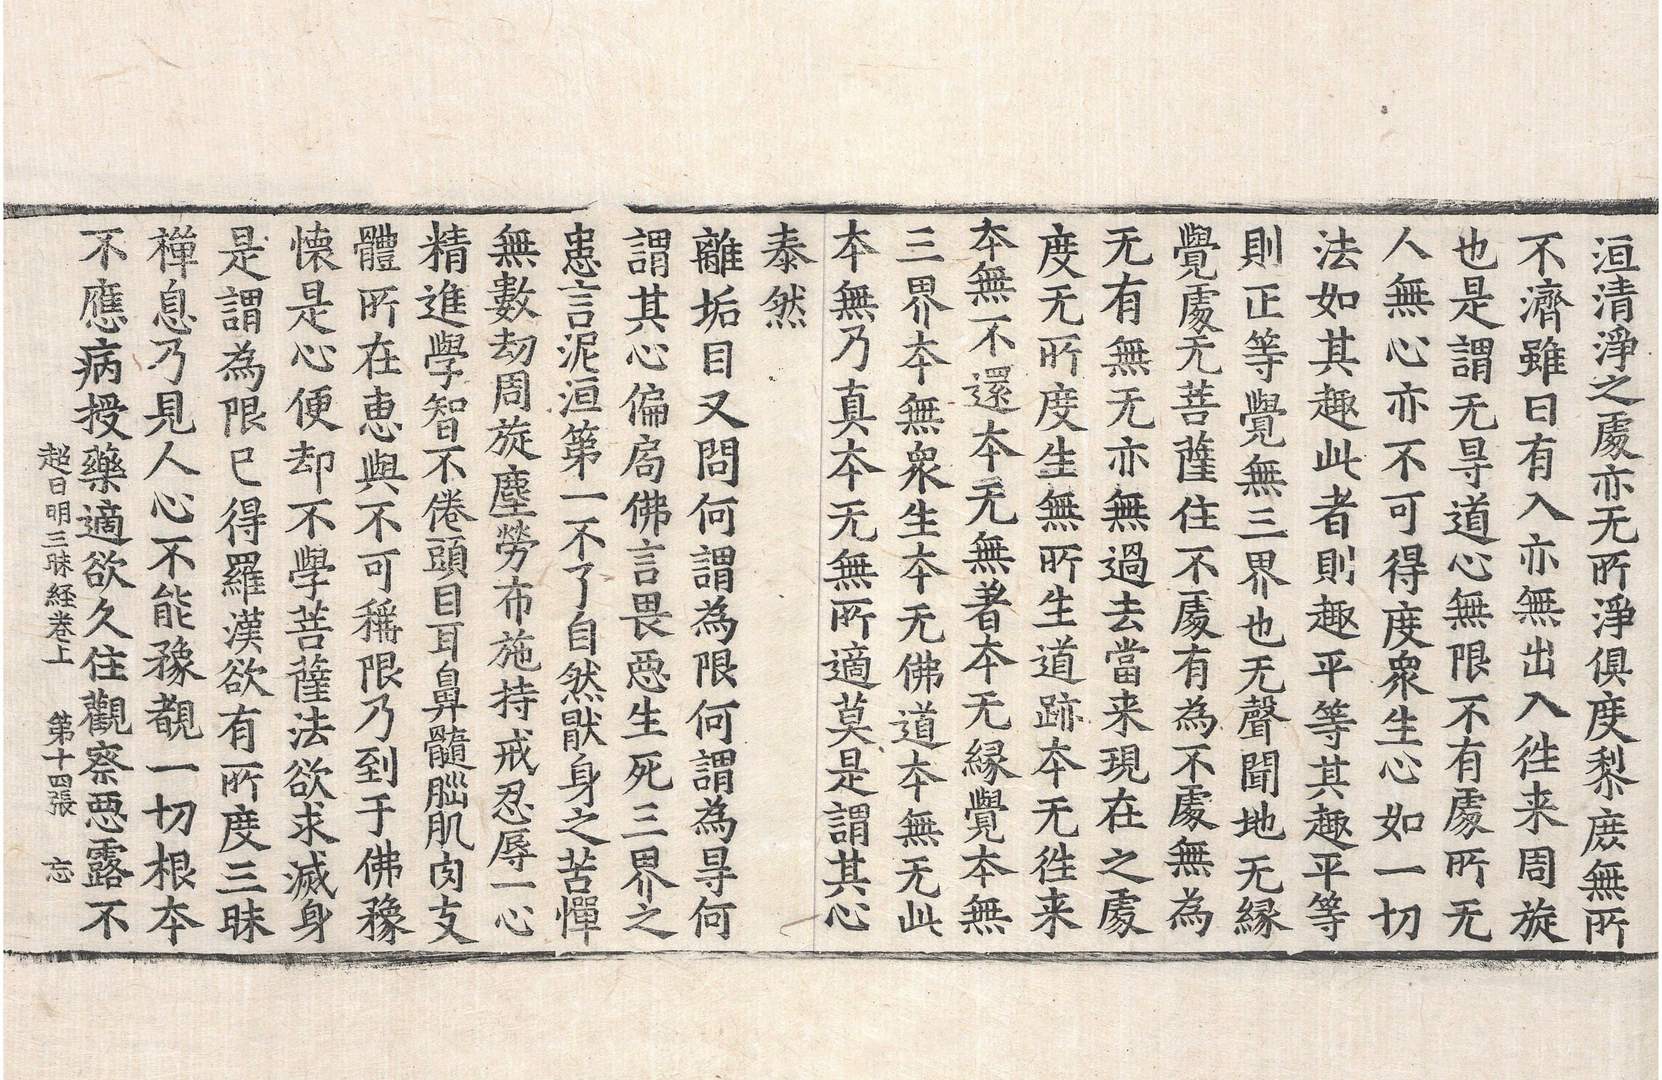 洹清淨之處亦无所淨俱度黎庶無所
不濟雖曰有入亦無出入往来周旋
也是謂无㝵道心無限不有處所无
人無心亦不可得度衆生心如一切
法如其趣此者則趣平等其趣平等
則正等覺無三界也无聲聞地无縁
覺處无菩薩住不處有為不處無為
无有無无亦無過去當来現在之處
度无所度生無所生道跡本无往来
本無不還本无無著本无縁覺本無
三界本無衆生本无佛道本無无此
本無乃真本无無所適莫是謂其心
泰然
離垢目又問何謂為限何謂為㝵何
謂其心偏局佛言畏惡生死三界之
患言泥洹第一不了自然猒身之苦憚
無數劫周旋塵勞布施持戒忍辱一心
精進學智不倦頭目耳鼻髓腦肌肉支
體所在恵與不可稱限乃到于佛豫
懐是心便却不學菩薩法欲求滅身
是謂為限已得羅漢欲有所度三昧
禅息乃見人心不能豫覩一切根本
不應病授藥適欲久住觀察惡露不
超日明三昧経卷上 第十四張 忘